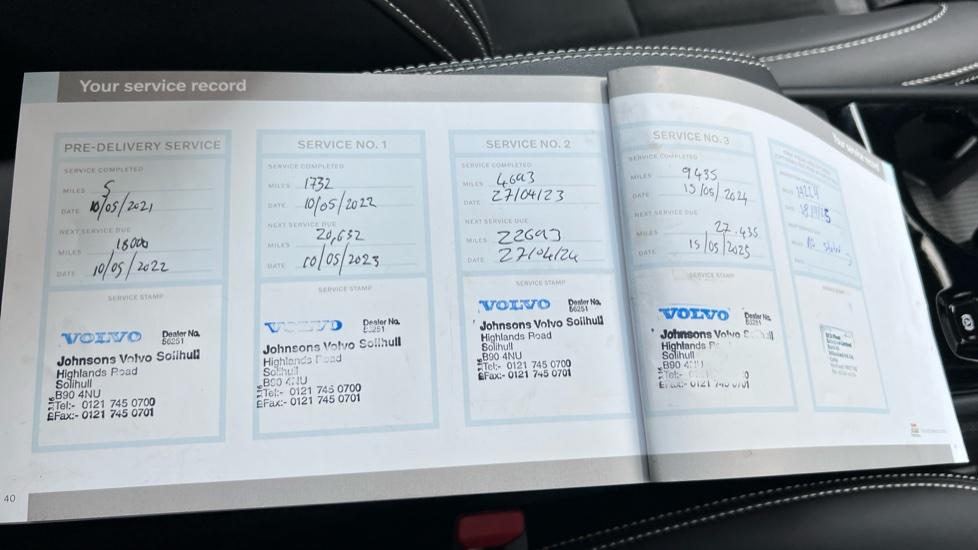 Your service record
PRE-DELIVERY SERVICE
SERVICE COMPLETED
MILES 5
DATE 10/05/2021
NEXT SERVICE DUE
MILES 18000
DATE 10/05/2022
SERVICE STAMP
VOLVO Dealer No.
56251
Johnsons Volvo Solihull
Highlands Road
Solihull
B90 4NU
Tel:- 0121 745 0700
Fax:- 0121 745 0701
SERVICE NO. 1
SERVICE COMPLETED
MILES 1732
DATE 10/05/2022
NEXT SERVICE DUE
MILES 20,632
DATE 10/05/2023
SERVICE STAMP
VOLVO Dealer No.
56251
Johnsons Volvo Solihull
Highlands Road
Solihull
B90 4NU
Tel:- 0121 745 0700
Fax:- 0121 745 0701
SERVICE NO. 2
SERVICE COMPLETED
MILES 4693
DATE 27/04/23
NEXT SERVICE DUE
MILES 22693
DATE 27/04/24
SERVICE STAMP
VOLVO Dealer No.
56251
Johnsons Volvo Solihull
Highlands Road
Solihull
B90 4NU
Tel:- 0121 745 0700
Fax:- 0121 745 0701
SERVICE NO. 3
SERVICE COMPLETED
MILES 9435
DATE 15/05/2024
NEXT SERVICE DUE
MILES 27.435
DATE 15/05/2025
SERVICE STAMP
VOLVO Dealer No.
56251
Johnsons Volvo
Highlands
Solihull
B90
Tel:-
Fax:- 0121 745 0701
Your service record
40